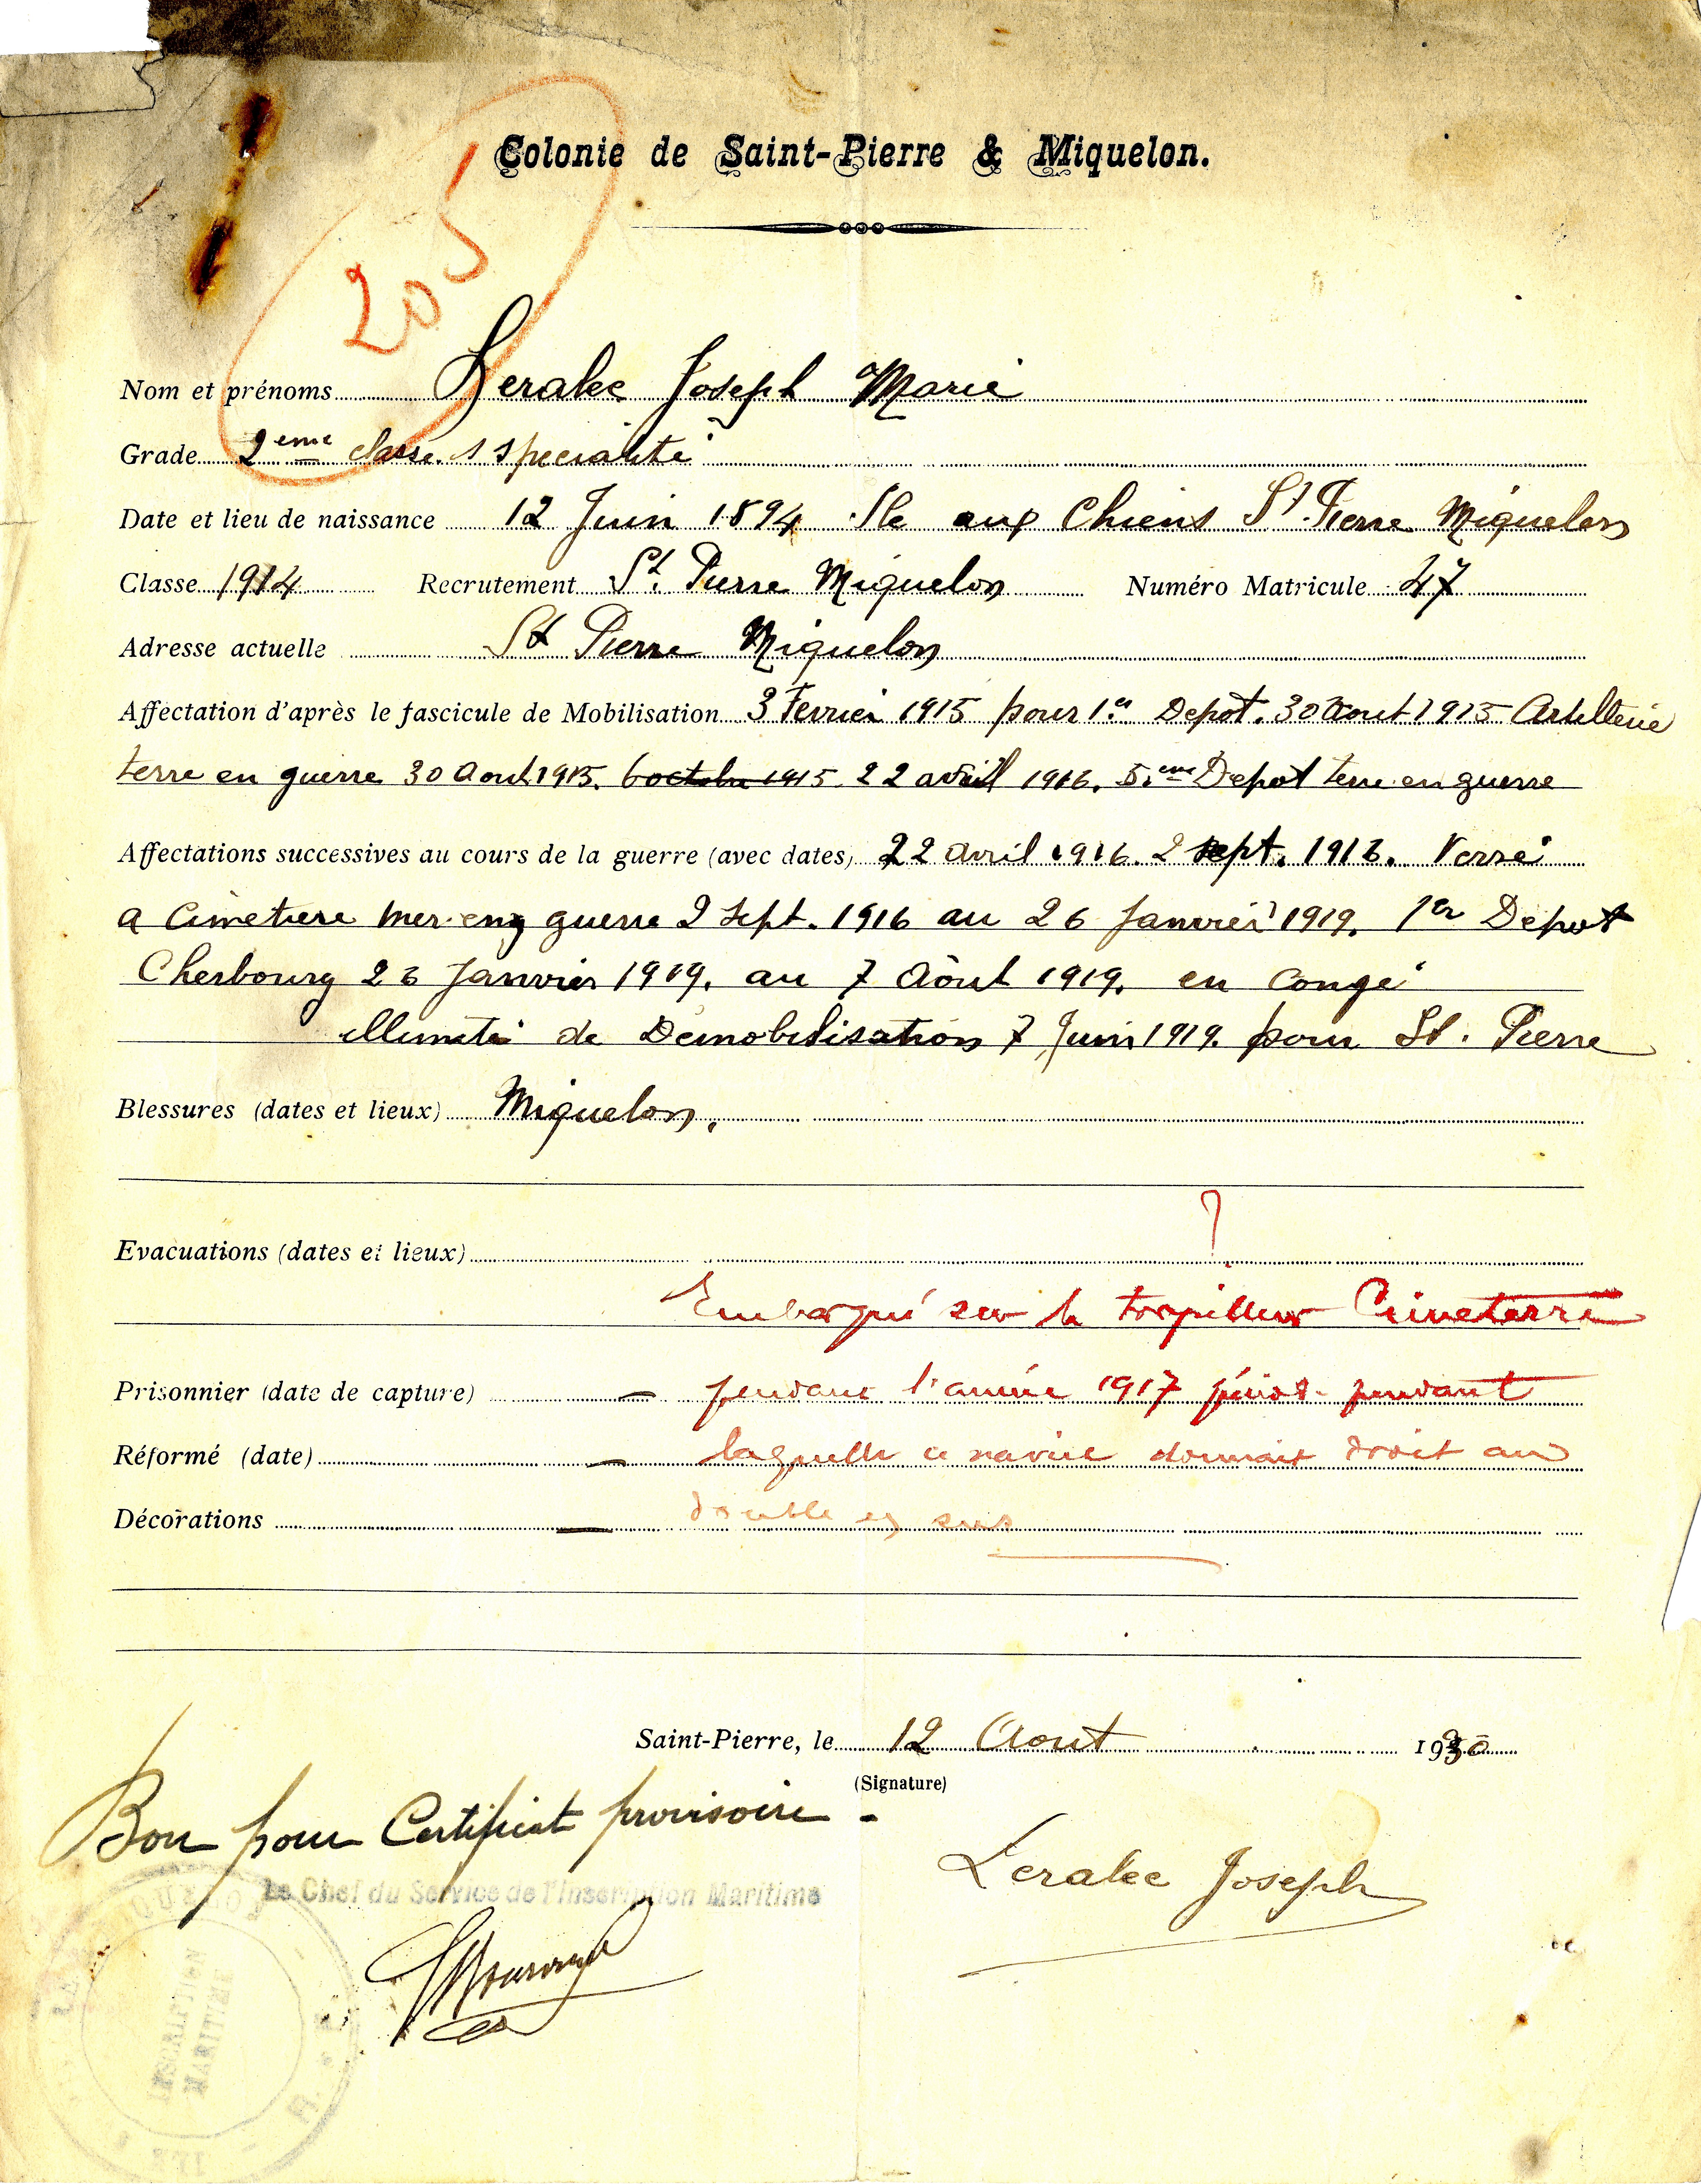 Colonie de Saint-Pierre & Miquelon.
205
Nom et prénoms Leralec Joseph Marie
Grade 2eme classe s specialité
Date et lieu de naissance 12 Juin 1894 Ile aux Chiens St. Pierre Miquelon
Classe 1914 Recrutement St. Pierre Miquelon Numéro Matricule 47
Adresse actuelle St Pierre Miquelon
Affectation d'après le fascicule de Mobilisation 3 Fevrier 1915 pour 1er Depot. 30 Aout 1915 Artillerie
terre en guerre 30 Aout 1915. 6 octobre 1915 22 avril 1916. 5.eme Depot terre en guerre
Affectations successives au cours de la guerre (avec dates) 22 Avril 1916. 2 sept. 1916. Versé
a Cimetiere mer en guerre 2 Sept. 1916 au 26 Janvier 1919. 1er Depot
Cherbourg 26 Janvier 1919. au 7 Aout 1919. en congé
illimité de Demobilisation 7 Juin 1919. pour St. Pierre
Blessures (dates et lieux) Miquelon.
Evacuations (dates et lieux) ?
Embarqué sur le torpilleur Cimeterre
Prisonnier (date de capture) — pendant l'année 1917 pendant
Réformé (date) — laquelle ce navire donnait droit au
Décorations — double en sus
Saint-Pierre, le 12 Aout 1930
(Signature)
Bon pour Certificat provisoire -
Le Chef du Service de l'Inscription Maritime
Leralec Joseph
INSCRIPTION
MARITIME